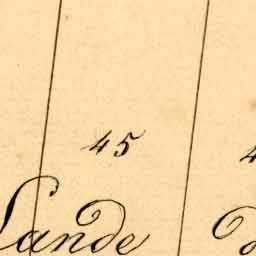 45 4
Lande